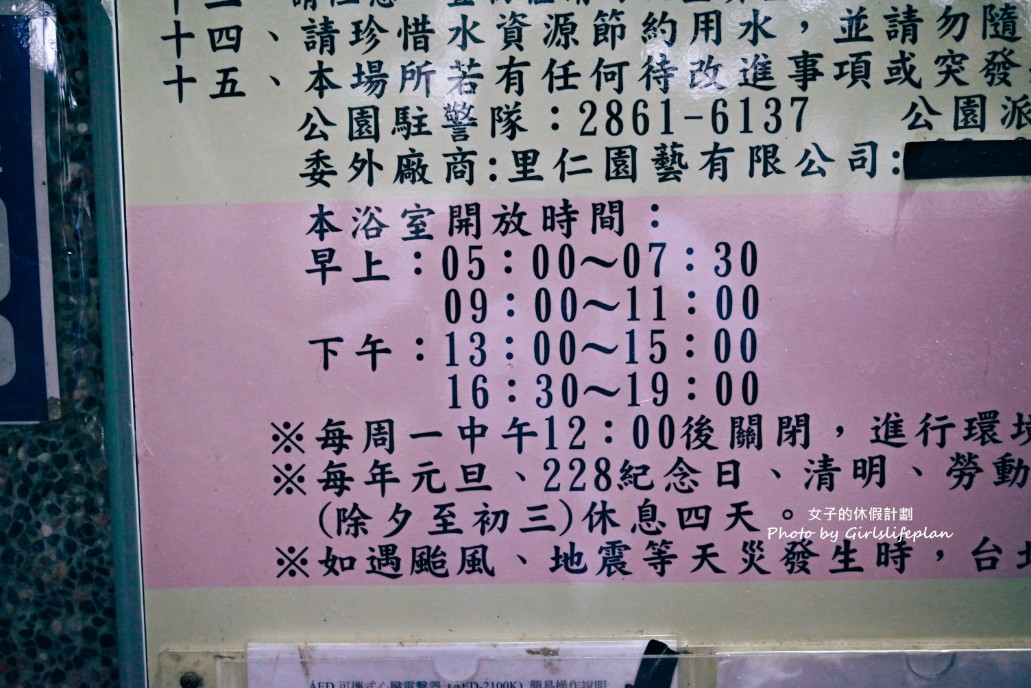 十四、請珍惜水資源節約用水，並請勿隨
十五、本場所若有任何待改進事項或突發
公園駐警隊：2861-6137 公園派
委外廠商:里仁園藝有限公司:
本浴室開放時間：
早上：05：00～07：30
09：00～11：00
下午：13：00～15：00
16：30～19：00
※每周一中午12：00後關閉，進行環境
※每年元旦、228紀念日、清明、勞動
(除夕至初三)休息四天。
女子的休假計劃
Photo by Girlslifeplan
※如遇颱風、地震等天災發生時，台北
AED 可攜式心臟電擊器 (AED-2100K) 簡易操作說明